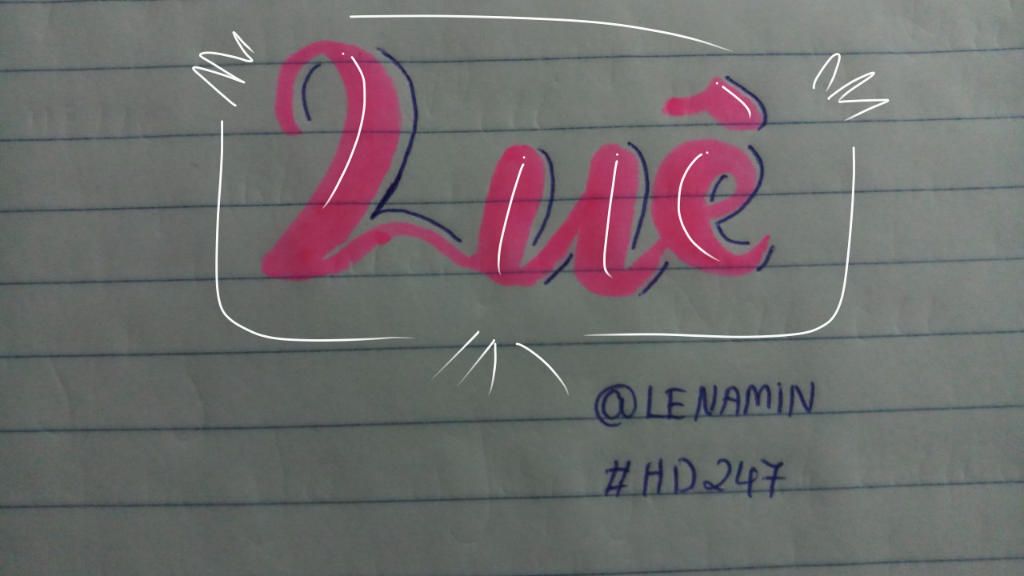 Quê
@LENAMIN
#HD247